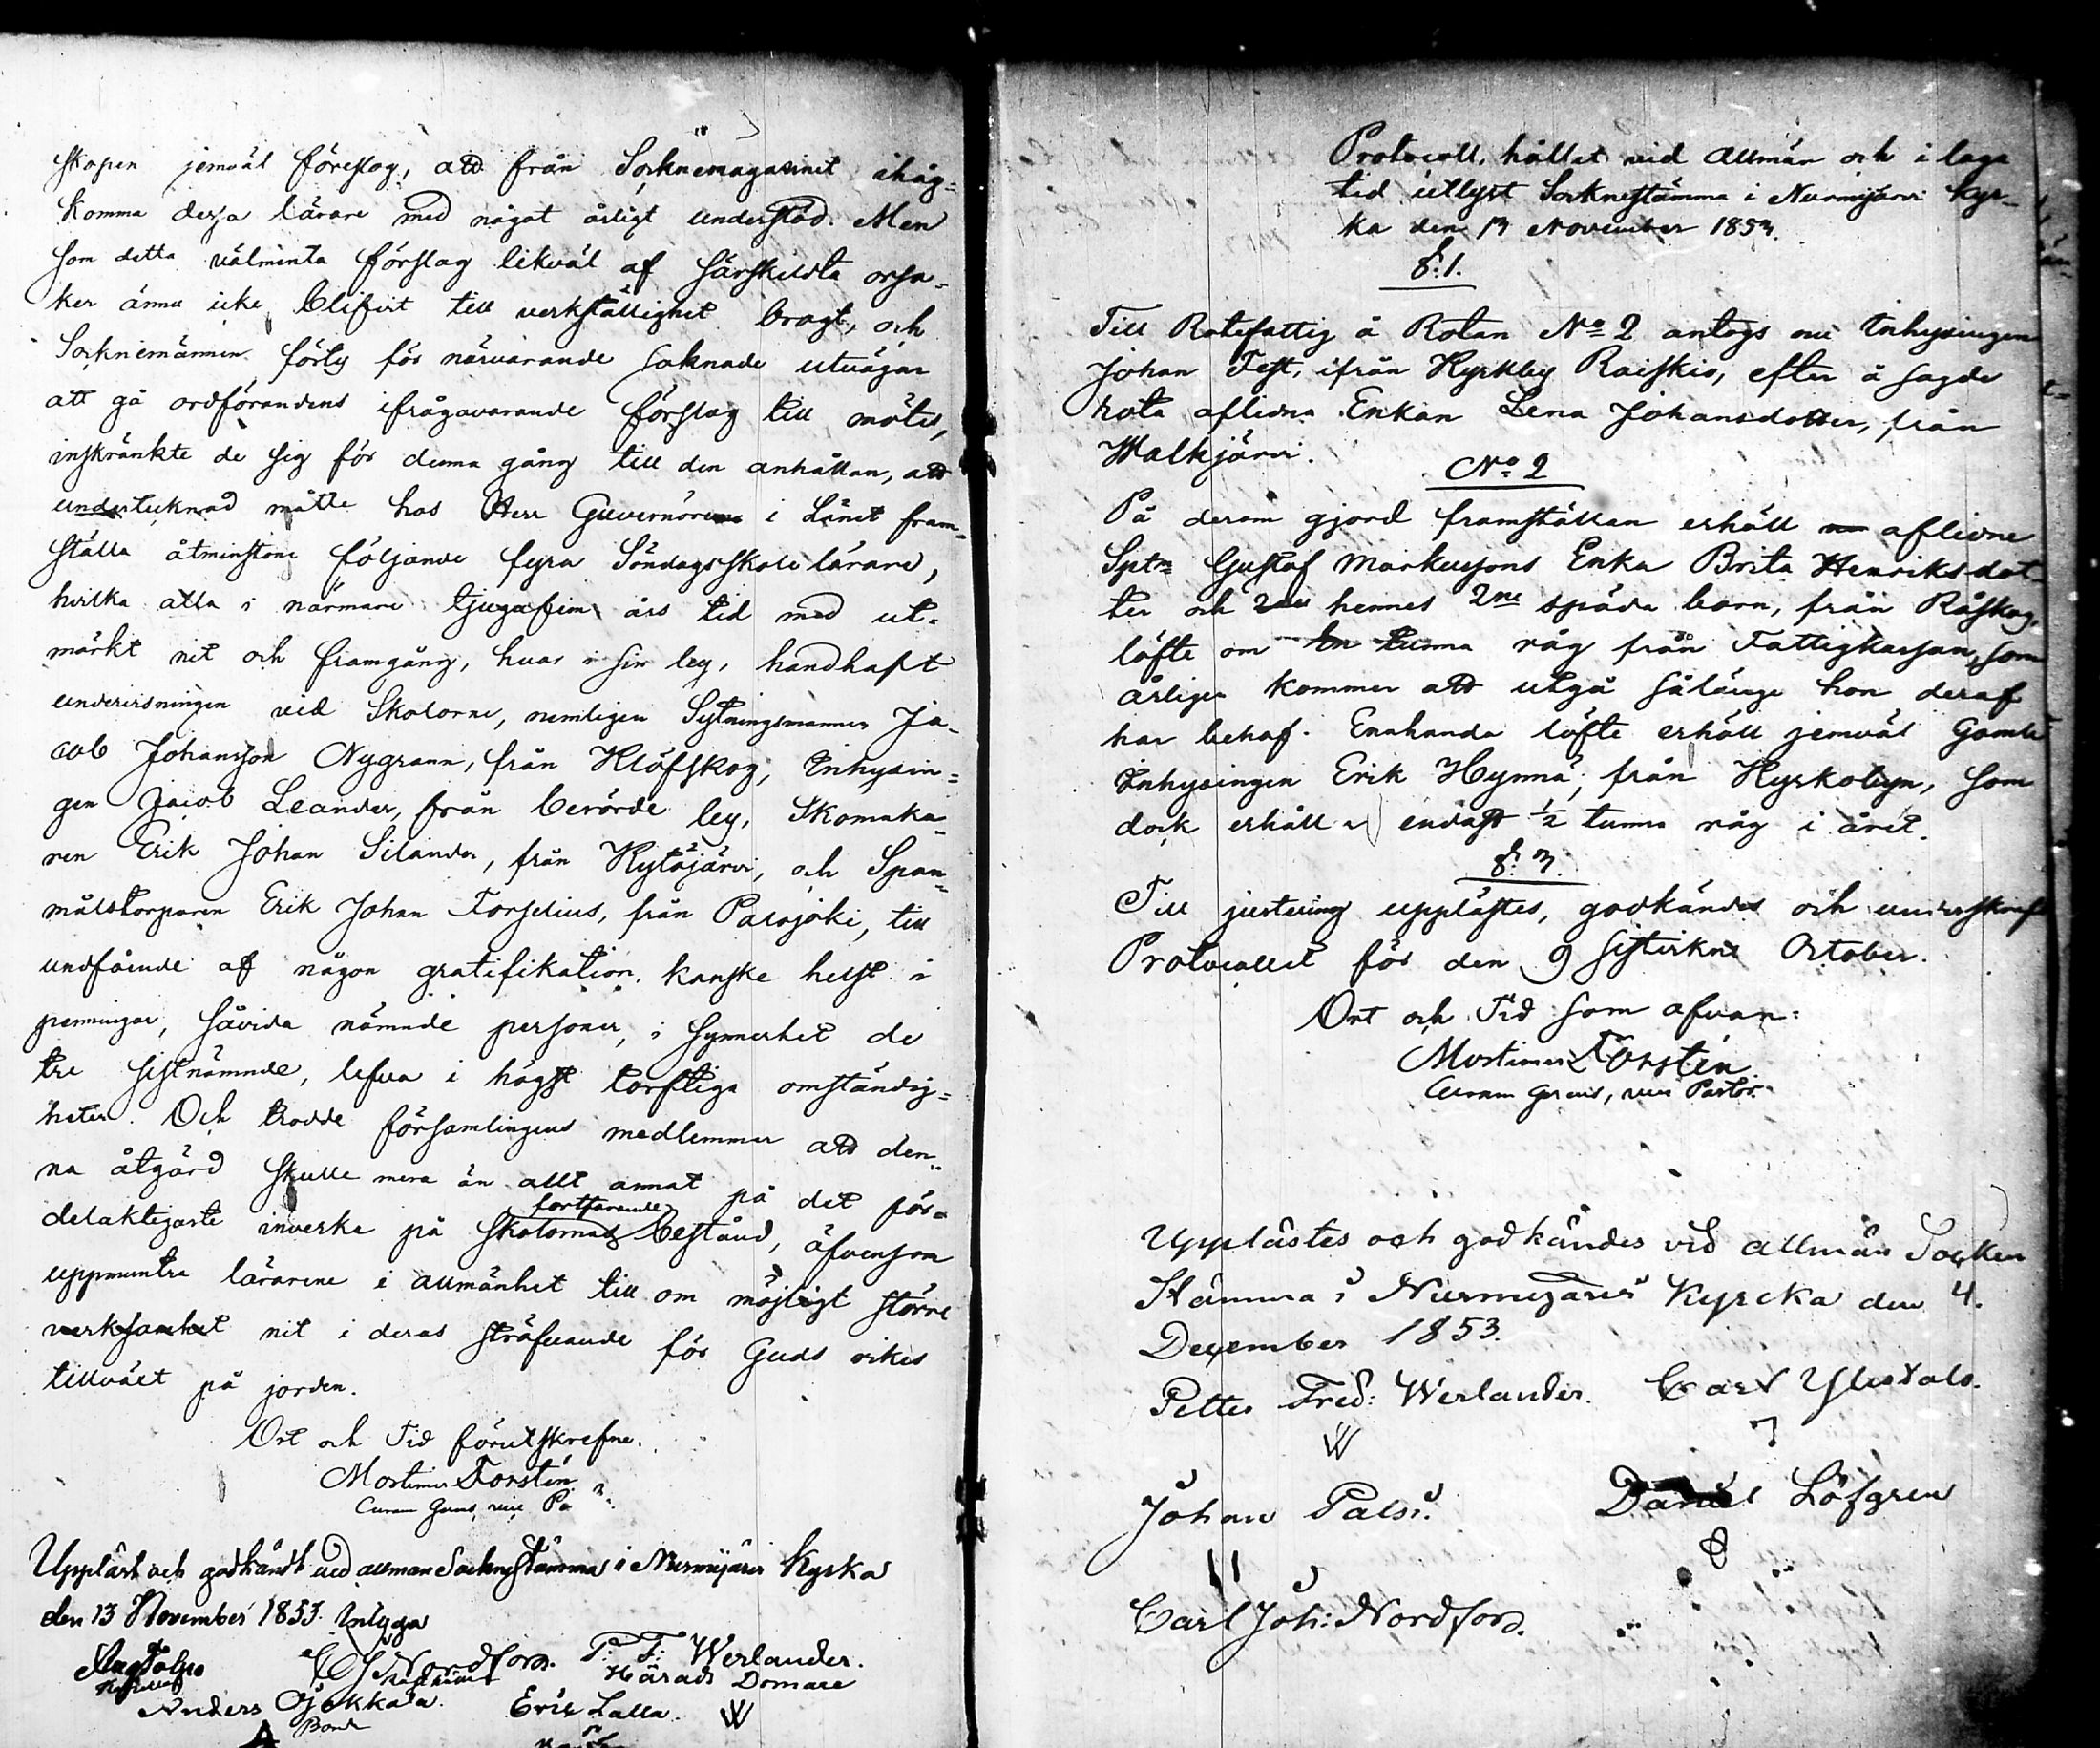 skapen jemväl föreslog, att från Socknemagasinet ihåg-
komma dessa lärare med något årligt understöd. Men
som detta välmenta förslag likväl af särskildta orsa-
ker ännu icke blifvit till verkställighet bragt, och
Socknemännen förty för närvarande saknade utvägar
att gå ordförandens ifrågavarande förslag till mötes,
inskränkte de sig för denna gång till den anhållan, att
undertecknad måtte hos Herr Guvernören i Länet fram-
ställa åtminstone följande fyra Söndagsskolelärare,
hvilka alla i närmare tjugufem års tid med ut-
märkt nit och framgång, hvar i sin by, handhaft
undervisningen vid Skolorne, nemligen Sytningsmannen Ja-
cob Johansson Nygrann, från Klöfskog, Inhysin-
gen Jacob Leander, från berörde by, Skomaka-
ren Erik Johan Silander, från Kytäjärvi, och Span-
målstorparen Erik Johan Forselius, från Palojoki, till
undfående af någon gratifikation, kanske helst i
penningar, såvida nämnde personer, i synnerhet de
tre sistnämnde, lefva i högst torftiga omständig-
heter. Och trodde församlingens medlemmar att den-
na åtgärd skulle mera än allt annat på det för-
fortfarande
delaktigaste inverka på Skolornas bestånd, äfvensom
uppmuntra lärarene i allmänhet till om möjligt större
verksamhet nit i deras sträfvande för Guds rikes
tillväxt på jorden.
Ort och Tid förutskrefne.
Mortimer Forstén
Curam Gerens, vice Pa
Uppläst och godkändt ved allman Sockne Stämma i Nurmijärvi Kyrka
den 13 November 1853. intyga
Nordfors. P: F: Werlander.
Härads Domare
Anders Ojakkala Erik Lalla W
Bonde
A
Protocoll, hållet vid allmän och i laga
tid utlyst Socknestämma i Nurmijärvi Kyr-
ka den 13 November 1853.
§. 1.
Till Rotefattig å Rotan No 2 antogs nu Inhysingen
Johan Fest, ifrån Kyrkby Raiskio, efter å sagde
rota aflidna Enkan Lena Johansdotter, från
Walkjärvi.
No 2
På derom gjord framställan erhöll aflidne
Sptn Gustaf Markussons Enka Brita Henriksdot-
ter och hennes 2ne späda barn, från Råskog,
löfte om En tunna råg från Fattigkassan, som
årligen kommer att utgå sålänge hon deraf
har behof. Enahanda löfte erhöll jemväl Gamle
Inhysingen Erik Hynnä, från Kyrkobyn, som
dock erhåller endast 1/2 tunna råg i året.
§. 3.
Till justering upplästes, godkändes och underskrefs
Protocollet för den 9 sistvikne October.
Ort och Tid som ofvan:
Mortimer Forstén
Curam Gerens, vice Pastor.
Upplästes och godkändes vid allmän Socken
Stämma i Nurmijärvi Kyrcka den 4.
December 1853.
Petter Fred: Werlander. Carl Ylistalo.
W
Johan Palsi. Daniel Löfgren
Carl Joh: Nordfors.